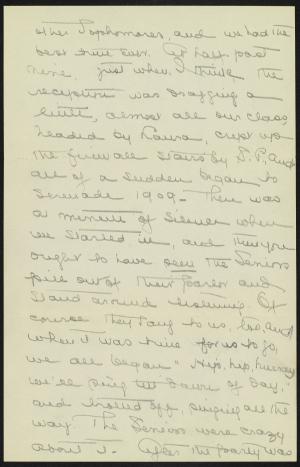 other Sophomores, and we had the
best time ever. At half past
nine, just when I think the
reception was dragging a
little, almost all our class,
headed by Laura, crept up
the fire wall stairs by S. P., and
all of a sudden began to
serenade 1909. There was
a minute of silence when
we started in, and then you
ought to have seen the Seniors
pile out of their parlor and
stand around listening. Of
course they sang to us, too, and
when it was time for us to go,
we all began "Hip, hip, hurray
we'll sing till dawn of day,"
and trailed off, singing all the
way. The Seniors were crazy
about it. After the party was